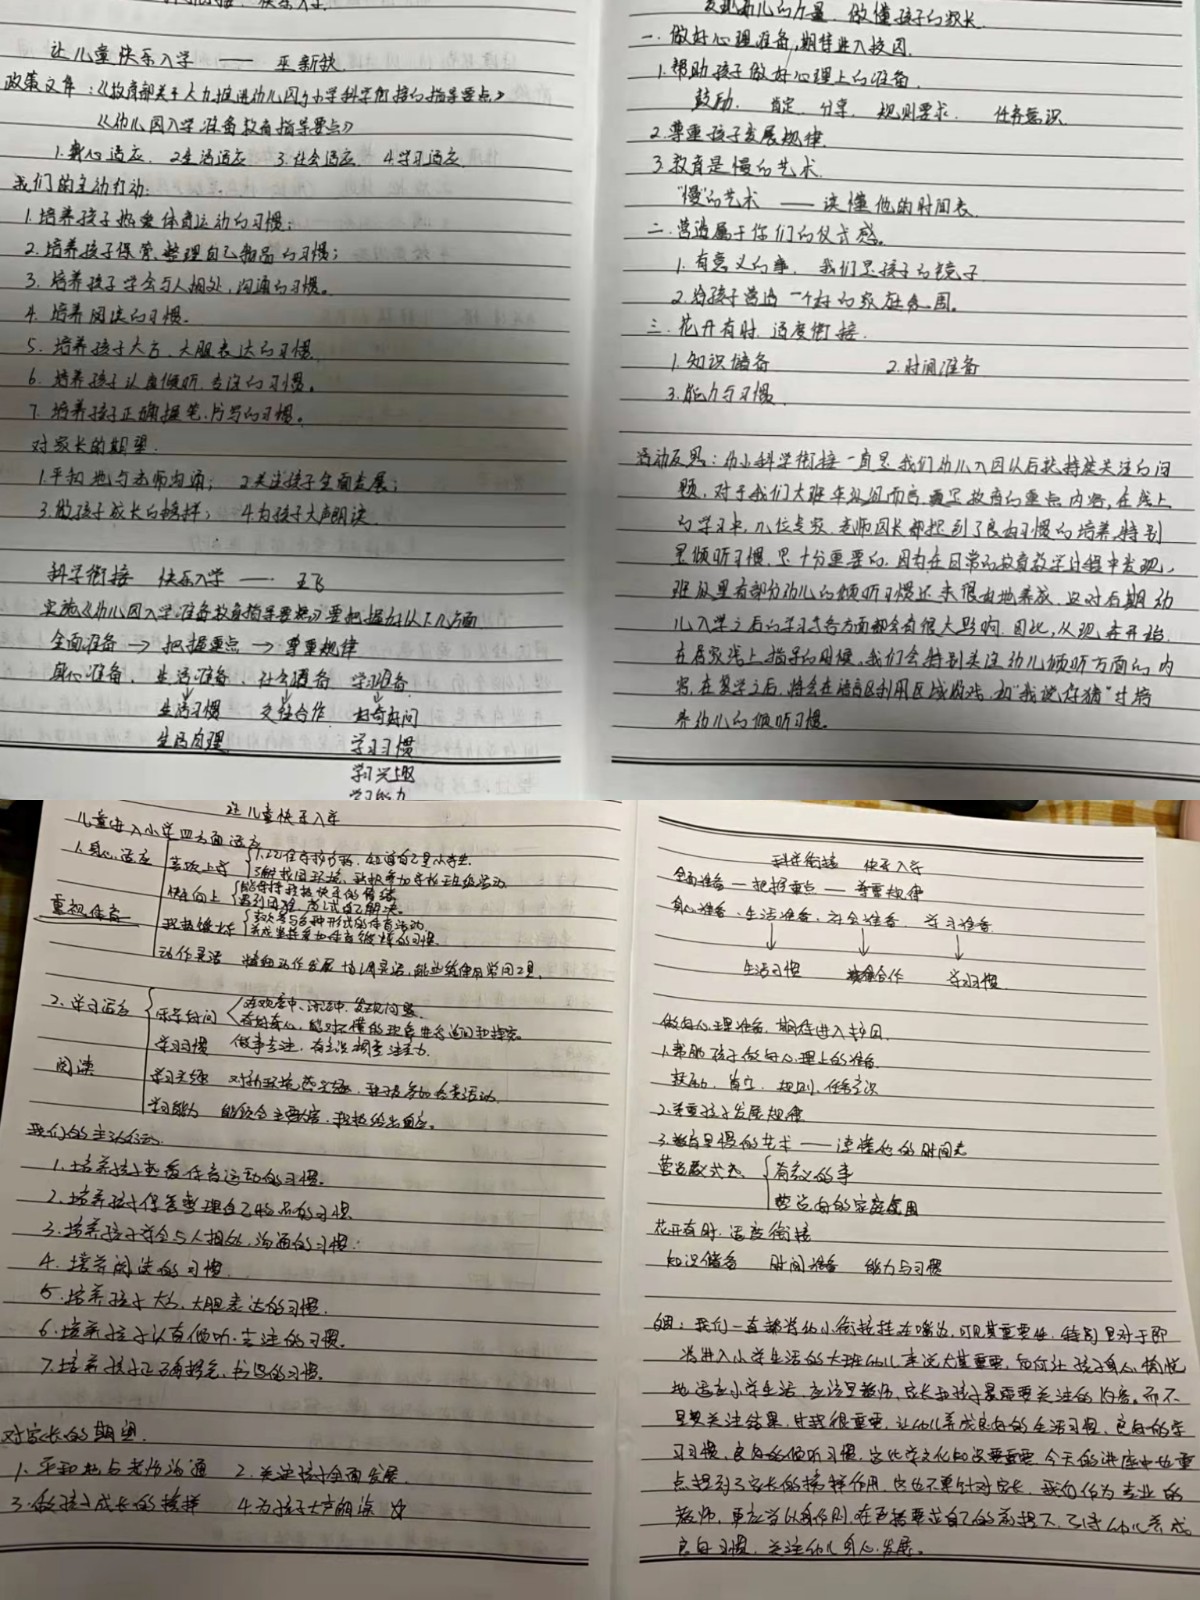 让儿童快乐入学 —— 巫新秋
政策文件:《教育部关于大力推进幼儿园与小学科学衔接的指导要点》
《幼儿园入学准备教育指导要点》
1.身心适应 2生活适应 3.社会适应 4.学习适应
我们的主动行动:
1.培养孩子热爱体育运动的习惯;
2.培养孩子保管、整理自己物品的习惯;
3.培养孩子学会与人相处,沟通的习惯。
4.培养阅读的习惯.
5.培养孩子大方、大胆表达的习惯
6.培养孩子认真倾听、专注的习惯。
7.培养孩子正确握笔、书写的习惯。
对家长的期望.
1.平和地与老师沟通; 2关注孩子全面发展;
3.做孩子成长的榜样; 4.为孩子大声朗读.
科学衔接 快乐入学 —— 王飞
实施《幼儿园入学准备教育指导要点》要把握好以下几方面
全面准备→把握重点→尊重规律
身心准备、生活准备、社会准备 学习准备
生活习惯 交往合作 好奇好问
生活自理 学习习惯
学习兴趣
学习能力
发现幼儿的力量 做懂孩子的家长
一.做好心理准备,期待进入校园.
1.帮助孩子做好心理上的准备.
鼓励. 肯定. 分享. 规则要求. 任务意识.
2.尊重孩子发展规律.
3.教育是慢的艺术.
"慢"的艺术 —— 读懂他的时间表.
二.营造属于你们的仪式感。
1.有意义的事. 我们是孩子的镜子
2.给孩子营造一个好的家庭氛围。
三.花开有时 适度衔接.
1.知识储备 2.时间准备
3.能力与习惯.
活动反思:幼小科学衔接一直是我们幼儿入园以后就持续关注的问
题,对于我们大班年级组而言,更是教育的重点内容,在线上
的学习中,几位专家、老师园长都提到了良好习惯的培养,特别
是倾听习惯.是十分重要的,因为在日常的教育教学过程中发现,
班级里有部分幼儿的倾听习惯还未很好地养成,这对后期幼
儿入学之后的学习等各方面都会有很大影响.因此,从现在开始,
在居家线上指导的时候,我们会特别关注幼儿倾听方面的内
容,在复学之后,将会在语言区利用区域游戏,如"我说你猜"才培
养幼儿的倾听习惯。
让儿童快乐入学
儿童进入小学四方面适应
1.身心适应 喜欢上学
3.了解校园环境,积极参加学校班级活动.
快乐向上 能保持积极快乐的情绪
遇到困难,尝试自己解决。
重视体育 积极锻炼 喜欢参与各种形式的体育活动
养成坚持参加体育锻炼的习惯.
动作灵活 精细动作发展 协调灵活,能熟练使用常用工具.
2.学习适应 乐学好问 游戏中、生活中,发现问题.
有好奇心,能对不懂的现象进行追问和探究.
学习习惯 做事专注,有意识调整注意力.
阅读 学习兴趣 对新环境感兴趣,积极参加各类活动.
学习能力 能领会主要内容,积极给出回应。
我们的主动行动.
1.培养孩子热爱体育运动的习惯。
2.培养孩子保管整理自己物品的习惯.
3.培养孩子学会与人相处,沟通的习惯.
4.培养阅读的习惯.
5.培养孩子大方,大胆表达的习惯.
6.培养孩子认真倾听、专注的习惯。
7.培养孩子正确握笔,书写的习惯.
对家长的期望.
1.平和地与老师沟通 2.关注孩子全面发展.
3.做孩子成长的榜样 4.为孩子大声朗读 ☆
科学衔接 快乐入学
全面准备 — 把握重点 — 尊重规律
身心准备、生活准备、社会准备、学习准备
生活习惯 合作 学习习惯
做好心理准备,期待进入校园.
1.帮助孩子做好心理上的准备.
鼓励、肯定. 规则、任务意识
2.尊重孩子发展规律
3.教育是慢的艺术 —— 读懂他的时间表
营造仪式感 有意义的事
营造好的家庭氛围
花开有时.适度衔接
知识储备 时间准备 能力与习惯
我们一直都将幼小衔接挂在嘴边,可见其重要性,特别是对于即
将进入小学生活的大班幼儿来说尤其重要,如何让孩子身心愉悦
地适应小学生活,应该是教师、家长和孩子最需要关注的内容。而不
是只关注结果,过程很重要,让幼儿养成良好的生活习惯、良好的学
习习惯、良好的倾听习惯,它比学文化知识更重要.今天的讲座中也重
点提到了家长的榜样作用,这也不单针对家长,我们作为专业的
教师,更应当以身作则,在严格要求自己的前提下,引导幼儿养成
良好习惯,关注幼儿身心发展。